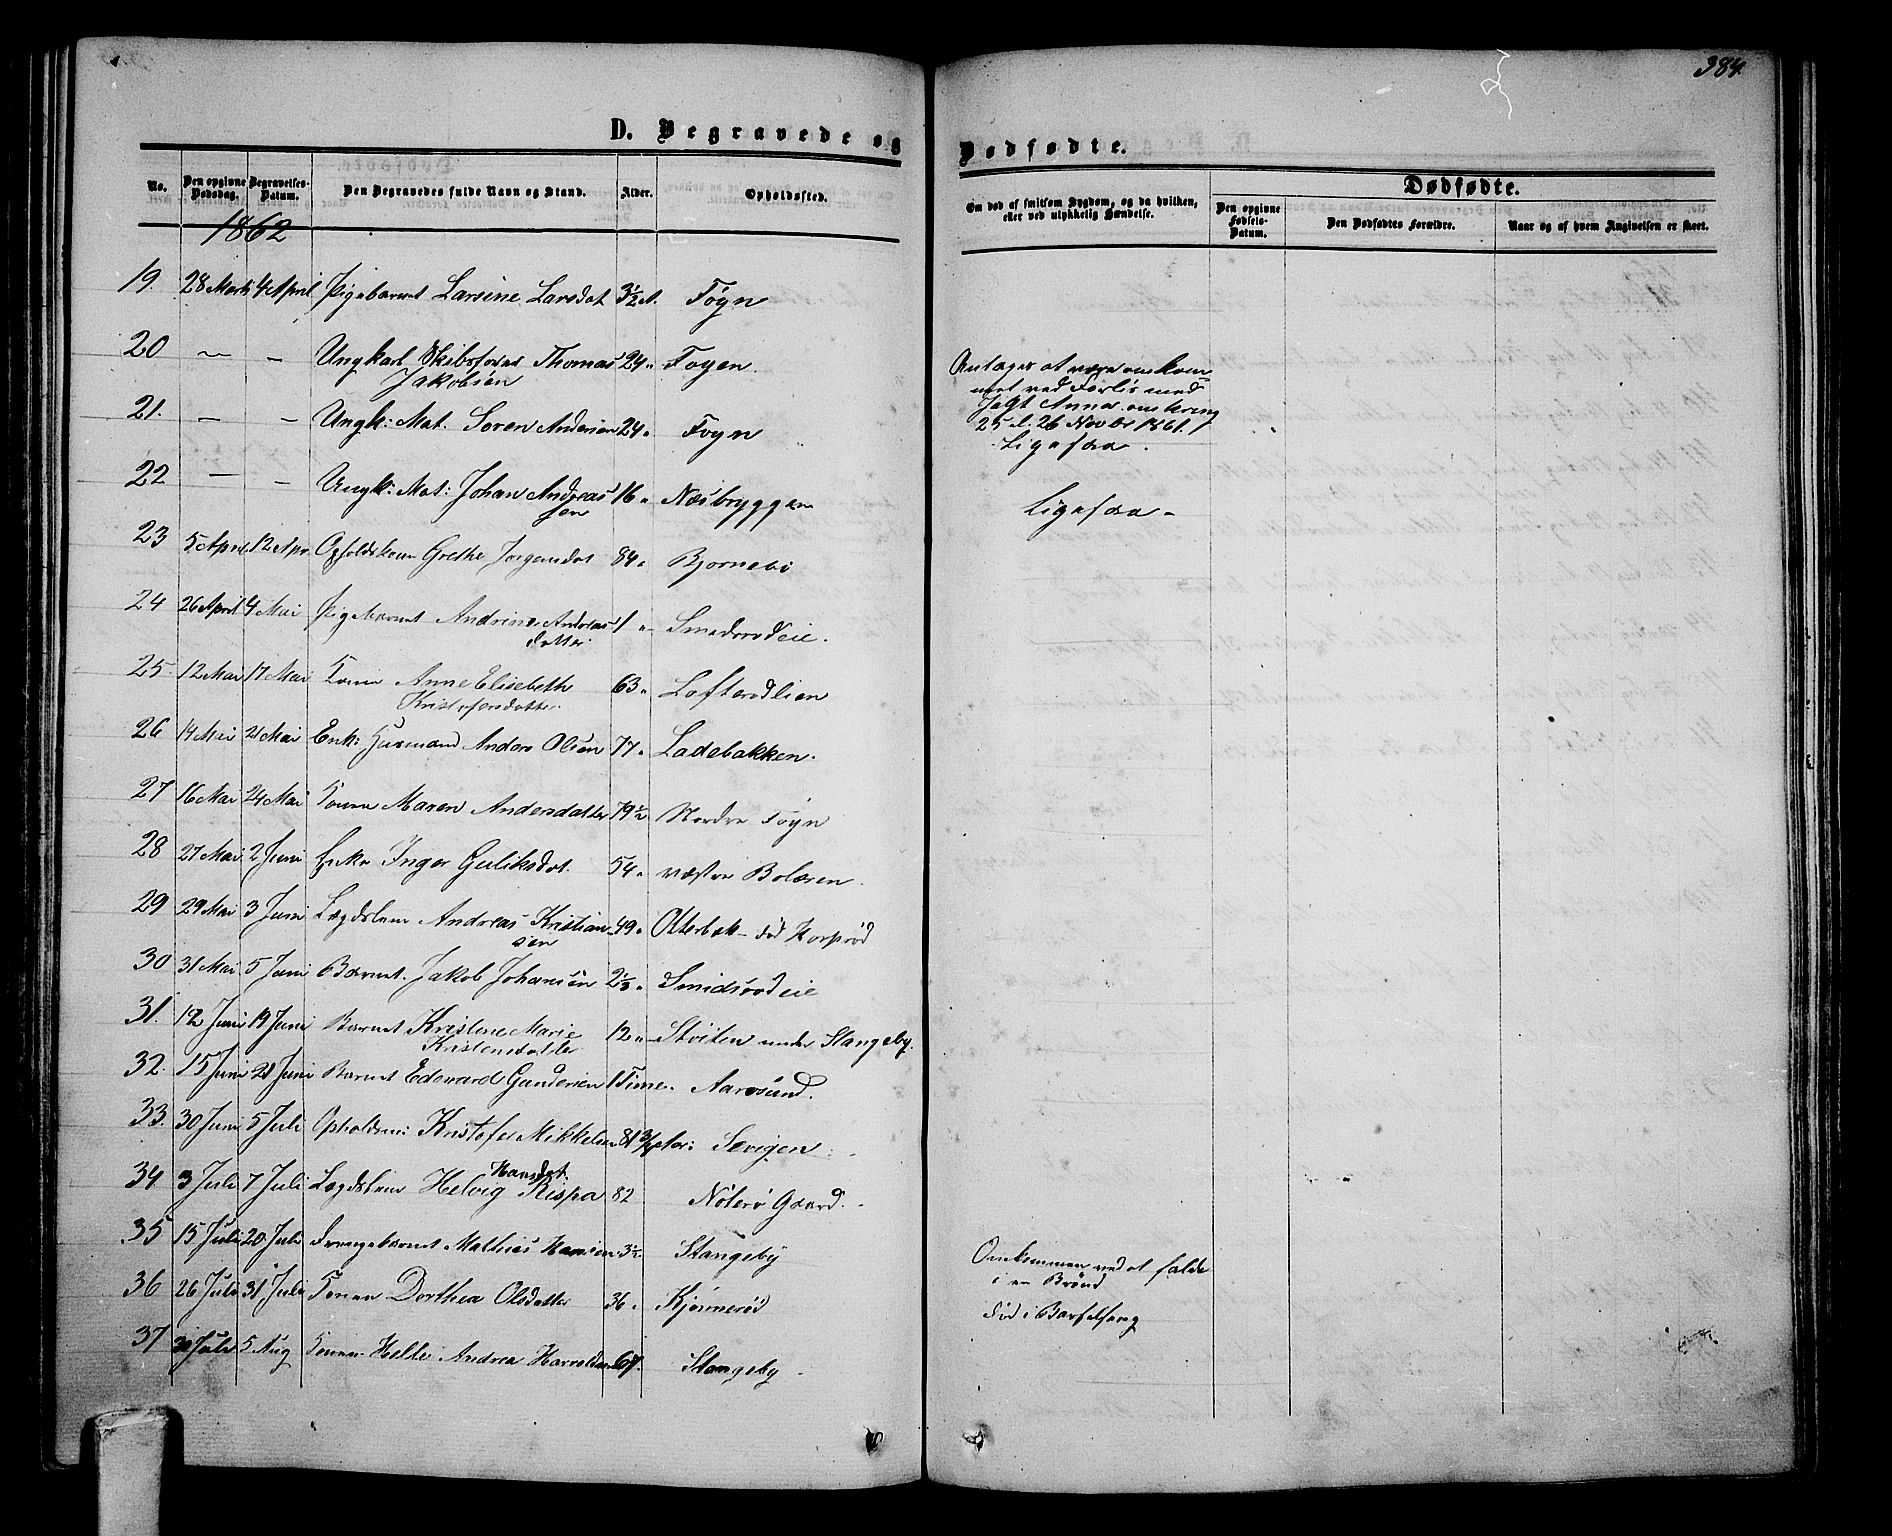 384.
D. Begravede og
Dødfødte.
No.
Den opgivne Dødsdag.
Begravelses-Datum.
Den Begravedes fulde Navn og Stand.
Alder.
Opholdssted.
Om død af smitsom Sygdom, og da hvilken,
eller ved ulykkelig Hændelse.
Dødfødte.
Den opgivne Fødsels-Datum.
Den Dødfødtes Forældre.
Naar og af hvem Angivelsen er skeet.
1862
19. 28 Marts 4 April Pigebarnet Larsine Larsdat 3½ A. Föyn
20 — — Ungkarl Skibsfører Thomas 24 " Foyen
Jakobsen
Antages at være omkom
met ved Forlis med
Jagt Anna omkring
25 d. 26 Novbr 1861.
21. — — Ungk: Mat. Soren Andersen 24 " Foyn
Ligesaa.
22 — — Ungk: Mat: Johan Andreas 16 " Næsbryggen
sen
Ligesaa -
23 5 April 12 Apr. Opholdskone Grethe Jorgensdat 84 " Bjornebo
24 26 April 4 Mai Pigebarnet Andrine Andreas 1 " Smedsrodeie.
datter.
25. 12 Mai 17 Mai Kone Anne Elisabeth 63 " Lofterodlien
Kristofersdatter.
26 14 Mai 21 Mai Enk: Husmand Anders Olsen 77 " Ladebakken.
27 16 Mai 24 Mai Konen Maren Andersdatter 79½ Nordre Föyn
28 27 Mai 2 Juni Enke Inger Guliksdat. 54 " vestre Bolæren.
29 29 Mai 3 Juni Lægdslem Andreas Kristian 49 " Otterbæk - död Korsröd
sen
30 31 Mai 5 Juni Barnet. Jakob Johansen 2⅓ " Smidsrodeie
31. 12 Juni 19 Juni Barnet Kristine Marie 12 " Stviten under Stangeby.
Kristensdatter
32. 15 Juni 21 Juni Barnet Edvvard Gundersen 1 Time. Aarosund.
33. 30 Juni 5 Juli Opholdsm: Kristofer Mikkelsen 81 ¾ Sevigen
34 3 Juli 7 Juli Lægdslem Helvig Hansdat: Rispa 82 Nöterö Gaard.
35 15 Juli 20 Juli Drengebarnet Mathias Hansen 3½ Stangeby
Omkommen ved at falde
i en Brönd
36 26 Juli 31 Juli Konen Dorthea Olsdatter 36 " Kjönneröd
död i Barselseng
37 30 Juli 5 Aug Konen Helle Andrea 67. Stangeby